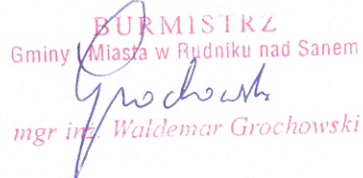 BURMISTRZ
Gminy i Miasta w Rudniku nad Sanem
Grochowski
mgr inż. Waldemar Grochowski